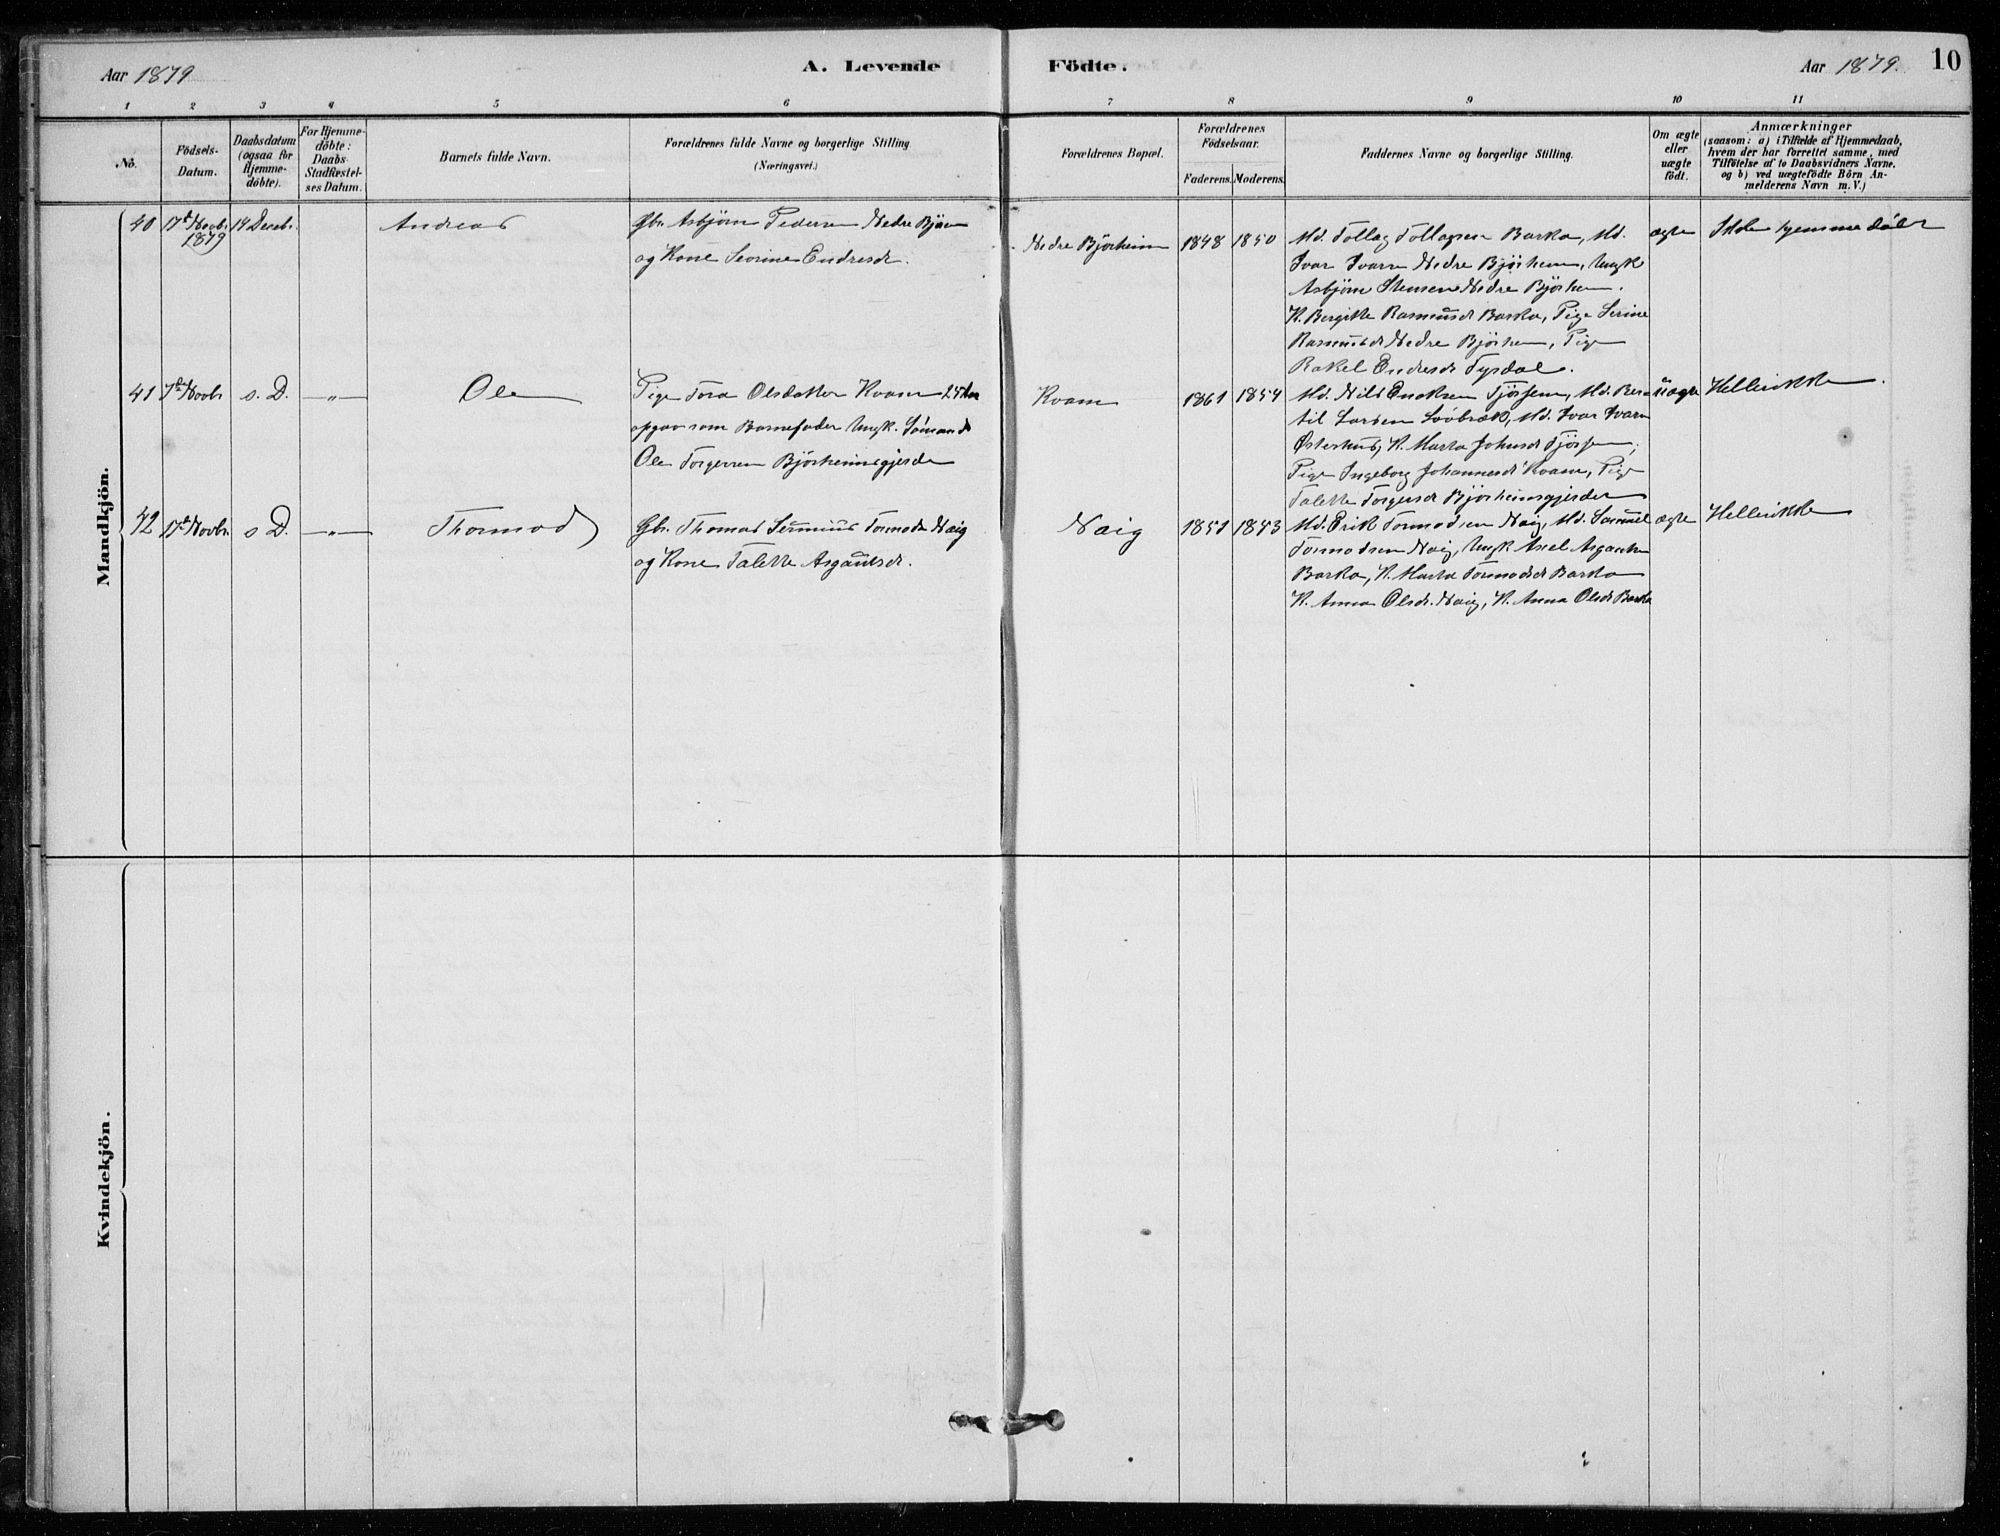 Aar 1879
A. Levende
Födte.
Aar 1879.
10
1 2 3 4 5 6 7 8 9 10 11
No.
Födsels-
Datum.
Daabsdatum
(ogsaa for
Hjemme-
döbte).
For Hjemme-
döbte:
Daabs-
Stadfæstel-
ses Datum.
Barnets fulde Navn.
Forældrenes fulde Navne og borgerlige Stilling
(Næringsvei.)
Forældrenes Bopæl.
Forældrenes
Födselsaar.
Faderens. Moderens.
Faddernes Navne og borgerlige Stilling.
Om ægte
eller
uægte
födt.
Anmærkninger
(saasom: a) i Tilfælde af Hjemmedaab,
hvem der har forrettet samme, med
Tilföielse af to Daabsvidners Navne.
og b) ved uægtefödte Börn An-
melderens Navn m.V.)
Mandkjön.
40
17de Novbr
1879
14 Decebr.
Andreas
Gbr. Asbjörn Pedersen Nedre Björn
og Kone Serine Endresdr.
Nedre Björheim
1848 1850
Md. Tollag Tollagsen Barka, Md.
Ivar Ivarsen Nedre Björhem, Ungk
Asbjörn Stensen Nedre Björhem.
K. Bergitte Rasmusdr Barka, Pige Serine
Rasmusdr Nedre Björhem, Pige
Rakel Endresdr Tysdal.
ægte
Ikke hjemmedöbt
41
7de Novbr
s. D.
—"—
Ole
Pige Tora Olsdatter Kvam
opgav som Barnefader Ungk. Sömand
Ole Torgersen Björheimsgjerde
Kvam
1861 1854
Md. Nils Enoksen Tjössem, Md. Ber-
til Larsen Lööbræk, Md. Ivar Ivars
Österhus, K. Marta Johnsdr Tjössem,
Pige Ingeborg Johannesdr Kvam, Pige
Talette Torgersdr Björheimsgjerde
uægte
Hellevikke.
42
17de Novbr
s D.
—"—
Thormod
Gbr. Thomas Severinus Tormods. Naig
og Kone Talette Asgautsdr.
Naig
1851 1853
Md. Erik Tormodsen Naig, Md. Samuel
Tormodsen Naig, Ungk Axel Asgauts
Barka, K. Marta Tormodsdr Barka
K. Anna Olsdr. Naig, K. Anna Olsdr Barka
ægte
Hellevikke
Kvindekjön.